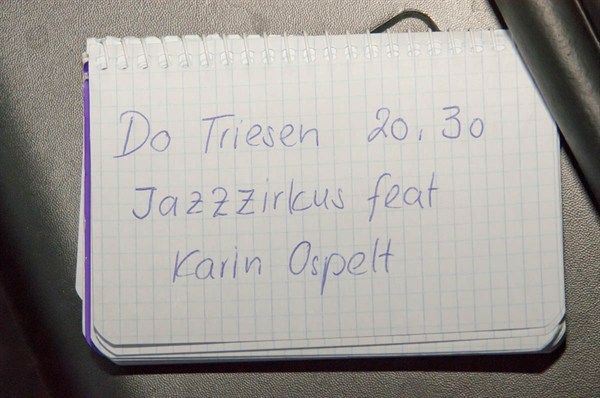 Do Triesen 20.30
Jazzzirkus feat
Karin Ospelt